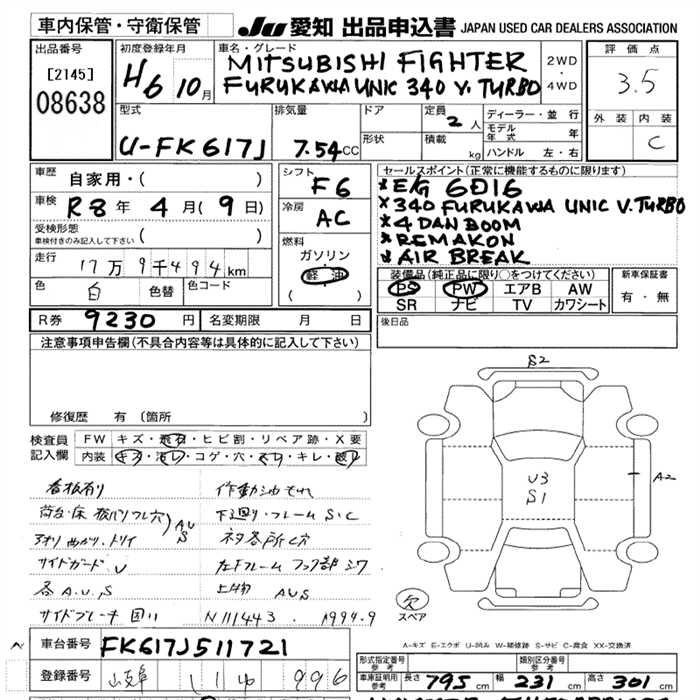 車内保管・守衛保管
JU 愛知 出品申込書 JAPAN USED CAR DEALERS ASSOCIATION
出品番号
[2145]
08638
初度登録年月
H6 10月
車名・グレード
MITSUBISHI FIGHTER
FURUKAWA UNIC 340 V. TURBO
2WD
・
4WD
評価点
3.5
外装 内装
C
型式
U-FK617J
排気量
7.54CC
ドア
形状
定員
2人
積載
kg
ディーラー・並行
モデル年式 年
ハンドル 左・右
車歴 自家用・( )
車検 R8年 4月(9日)
受検形態
車検付きのみ記入して下さい ( )
走行 17万9千494km
色 白 色替 色コード
シフト
F6
冷房
AC
燃料
ガソリン
軽油
( )
セールスポイント(正常に機能するものに限ります)
*E/G 6D16
*340 FURUKAWA UNIC V.TURBO
*4 DAN BOOM
*REMAKON
*AIR BREAK
装備品(純正品に限り○をつけてください)
PS PW エアB AW
SR ナビ TV カワシート
新車保証書
有・無
R券 9230円 名変期限 月 日
後日品
注意事項申告欄(不具合内容等は具体的に記入して下さい)
修復歴 有(箇所
検査員記入欄
FW キズ・飛石・ヒビ割・リペア跡・X要
内装 キズ・汚レ・コゲ・穴・スレ・キレ・破レ
看板有り
作動油もれ
下廻り・フレームS・C
アオリ曲がり、
サイドガードU
各A.U.S
上物 AUS
サイドブレーキ
N111443. 1994.9
S2
U3
S1
A2
欠
スペア
A-キズ E-エクボ U-凹み W-補修跡 S-サビ C-腐食 XX-交換済
車台番号 FK617J511721
登録番号 岐阜 996
形式指定番号
参考
類別区分番号
参考
車庫証明用
参考
長さ 795cm 幅 231cm 高さ 301cm